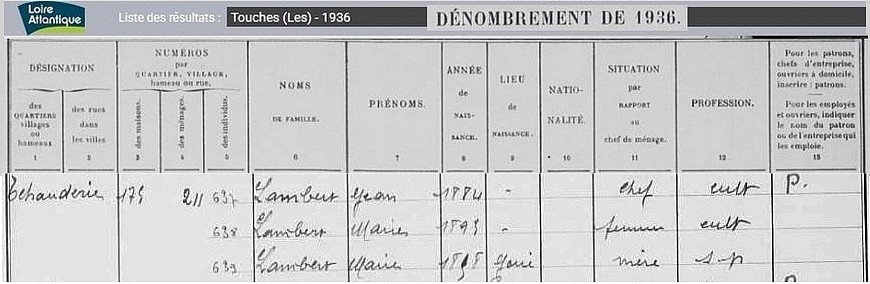 Loire
Atlantique
Liste des résultats : Touches (Les) - 1936
DÉNOMBREMENT DE 1936.
DÉSIGNATION
des QUARTIERS villages ou hameaux
1
des rues dans les villes
2
NUMÉROS
par
QUARTIER, VILLAGE,
hameau ou rue.
des maisons.
3
des ménages.
4
des individus.
5
NOMS
DE FAMILLE.
6
PRÉNOMS.
7
ANNÉE
de
NAIS-
SANCE.
8
LIEU
de
NAISSANCE.
9
NATIO-
NALITÉ.
10
SITUATION
par
RAPPORT
au
chef de ménage.
11
PROFESSION.
12
Pour les patrons,
chefs d'entreprise,
ouvriers à domicile,
inscrire : patrons.
Pour les employés
et ouvriers, indiquer
le nom du patron
ou de l'entreprise qui
les emploie.
13
211 637 Lambert Jean 1884 - chef cult P.
638 Lambert Marie 1893 - femme cult
639 Lambert Marie mère s-p